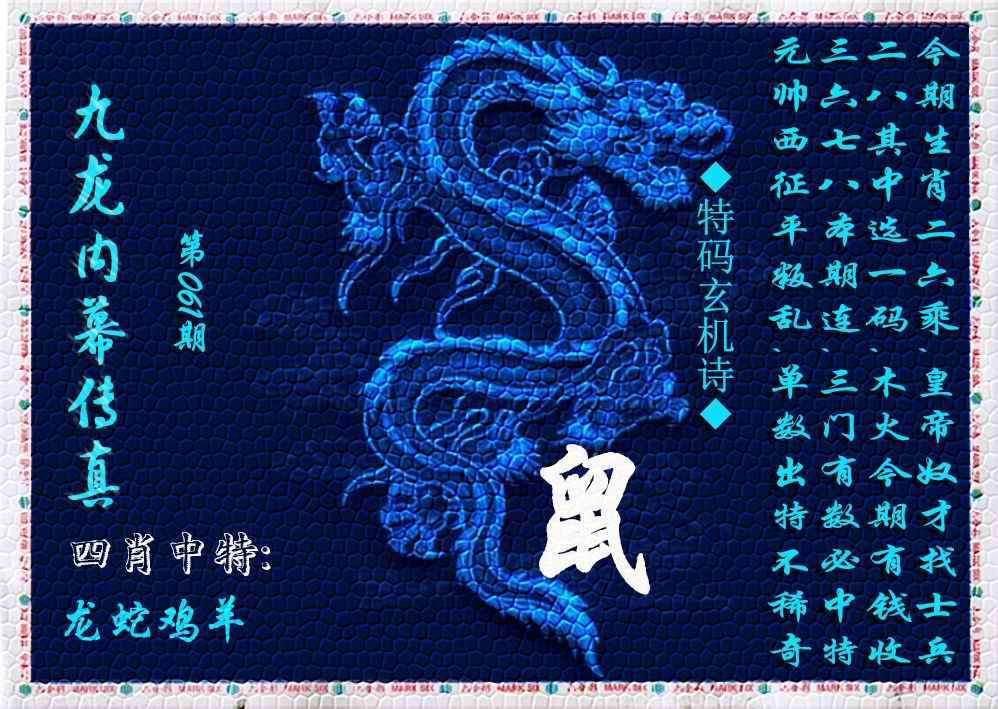 九龙内幕传真
第061期
四肖中特:
龙蛇鸡羊
◆特码玄机诗◆
今期生肖二六乘、皇帝奴才找士兵
二八其中选一码、木火今期有钱收
三六七八本期连、三门有数必中特
元帅西征平叛乱、单数出特不稀奇
鼠